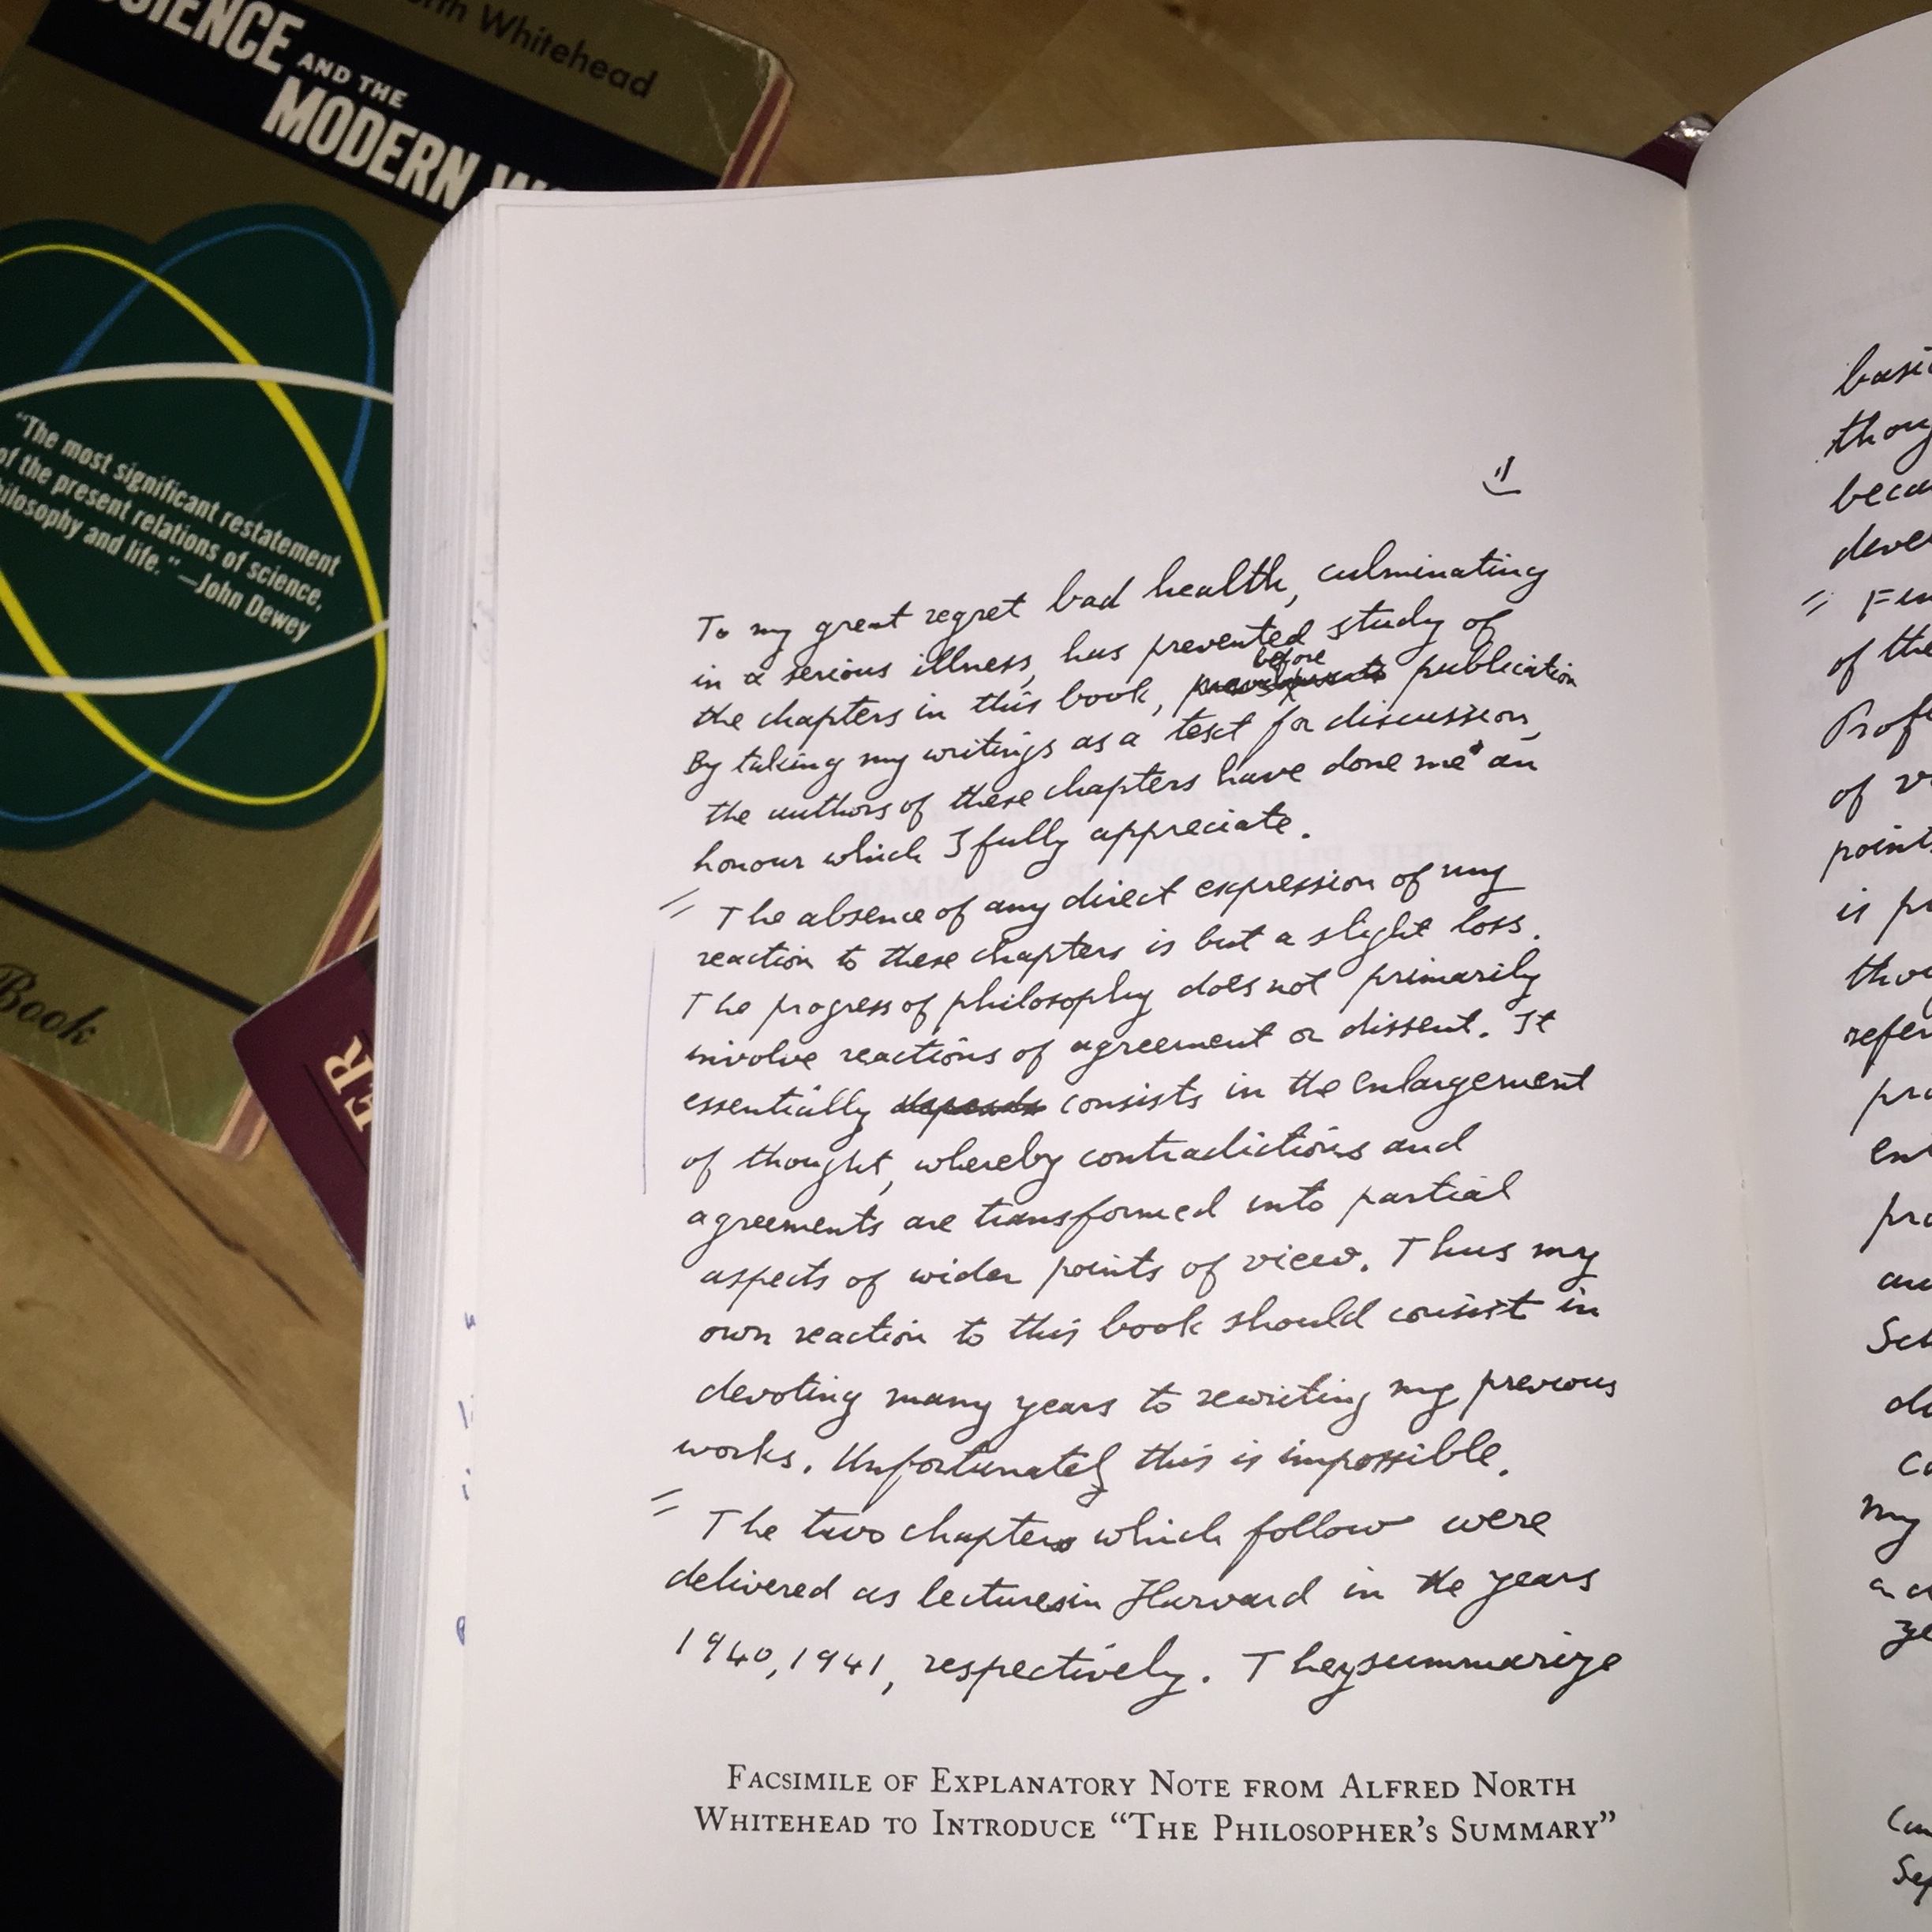 Whitehead
SCIENCE AND THE
MODERN
"The most significant restatement
of the present relations of science,
philosophy and life."—John Dewey
Book
ER
To my great regret bad health, culminating
in a serious illness, has prevented study of
the chapters in this book, before publication
By taking my writings as a text for discussion,
the authors of these chapters have done me an
honour which I fully appreciate.
The absence of any direct expression of my
reaction to these chapters is but a slight loss.
The progress of philosophy does not primarily
involve reactions of agreement or dissent. It
essentially depends consists in the enlargement
of thought, whereby contradictions and
agreements are transformed into partial
aspects of wider points of view. Thus my
own reaction to this book should consist in
devoting many years to rewriting my previous
works. Unfortunately this is impossible.
The two chapters which follow were
delivered as lectures in Harvard in the years
1940, 1941, respectively. They summarize
FACSIMILE OF EXPLANATORY NOTE FROM ALFRED NORTH
WHITEHEAD TO INTRODUCE "THE PHILOSOPHER'S SUMMARY"
of the
of
is
my